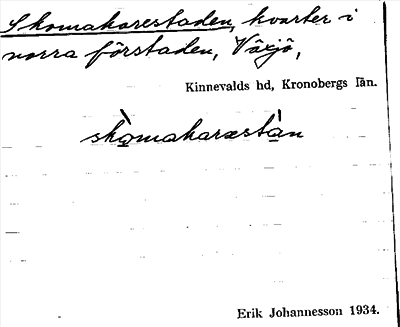 Skomakarestaden, kvarter i
norra förstaden, Växjö,
Kinnevalds hd, Kronobergs län.
skò̲makaræstà̲n
Erik Johannesson 1934.